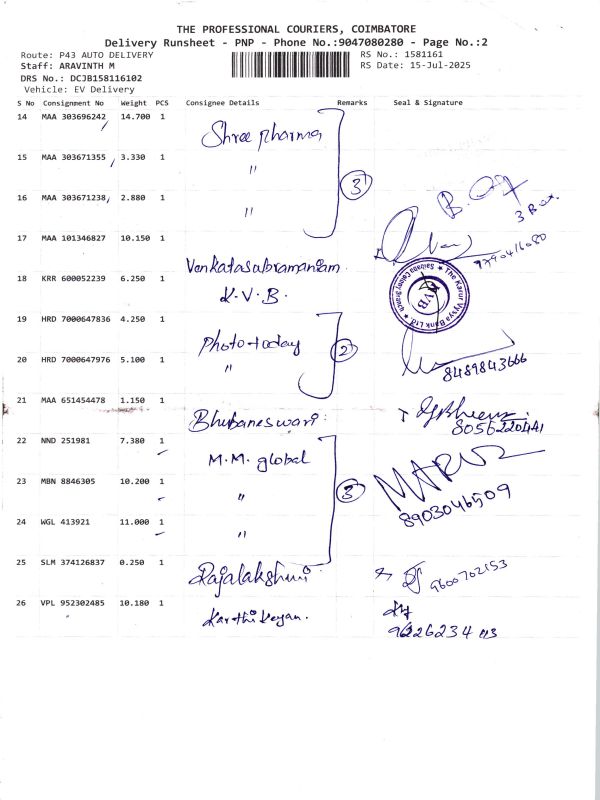 THE PROFESSIONAL COURIERS, COIMBATORE
Delivery Runsheet - PNP - Phone No.:9047080280 - Page No.:2
Route: P43 AUTO DELIVERY
Staff: ARAVINTH M
DRS No.: DCJB158116102
Vehicle: EV Delivery
RS No.: 1581161
RS Date: 15-Jul-2025
S No Consignment No Weight PCS Consignee Details Remarks Seal & Signature
14 MAA 303696242 14.700 1 Shree pharma
15 MAA 303671355 3.330 1 "
3
16 MAA 303671238 2.880 1 "
3 Box
17 MAA 101346827 10.150 1 Venkatasubramaniam
9790416080
18 KRR 600052239 6.250 1 K.V.B.
The Karur Vysya Bank Ltd. KVB
19 HRD 7000647836 4.250 1 Phototoday
2
20 HRD 7000647976 5.100 1 "
8489843666
21 MAA 651454478 1.150 1 Bhubaneswari
8056220441
22 NND 251981 7.380 1 M.M. global
23 MBN 8846305 10.200 1 "
3
8903046509
24 WGL 413921 11.000 1 "
25 SLM 374126837 0.250 1 Rajalakshmi
9600702153
26 VPL 952302485 10.180 1 Karthikeyan.